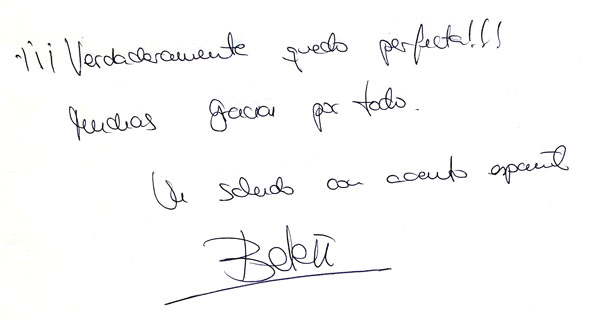 ¡¡¡Verdaderamente quedo perfecta!!!
Muchas gracias por todo.
Un saludo con acento español
Belén